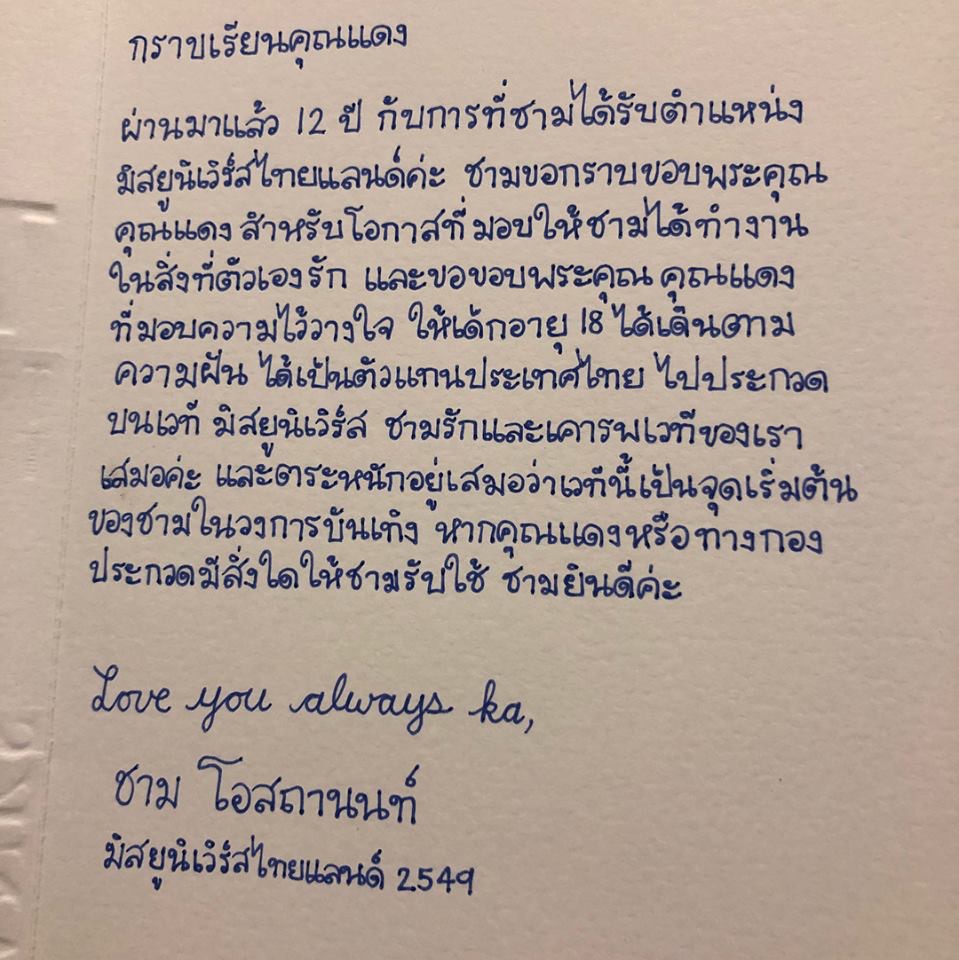 กราบเรียนคุณแดง
ผ่านมาแล้ว 12 ปี กับการที่ชามได้รับตำแหน่ง
มิสยูนิเวิร์สไทยแลนด์ค่ะ ชามขอกราบขอบพระคุณ
คุณแดง สำหรับโอกาสที่มอบให้ชามได้ทำงาน
ในสิ่งที่ตัวเองรัก และขอขอบพระคุณ คุณแดง
ที่มอบความไว้วางใจ ให้เด็กอายุ 18 ได้เดินตาม
ความฝัน ได้เป็นตัวแทนประเทศไทย ไปประกวด
บนเวที มิสยูนิเวิร์ส ชามรักและเคารพเวทีของเรา
เสมอค่ะ และตระหนักอยู่เสมอว่าเวทีนี้เป็นจุดเริ่มต้น
ของชามในวงการบันเทิง หากคุณแดงหรือทางกอง
ประกวดมีสิ่งใดให้ชามรับใช้ ชามยินดีค่ะ
Love you always ka,
ชาม โอสถานนท์
มิสยูนิเวิร์สไทยแลนด์ 2549